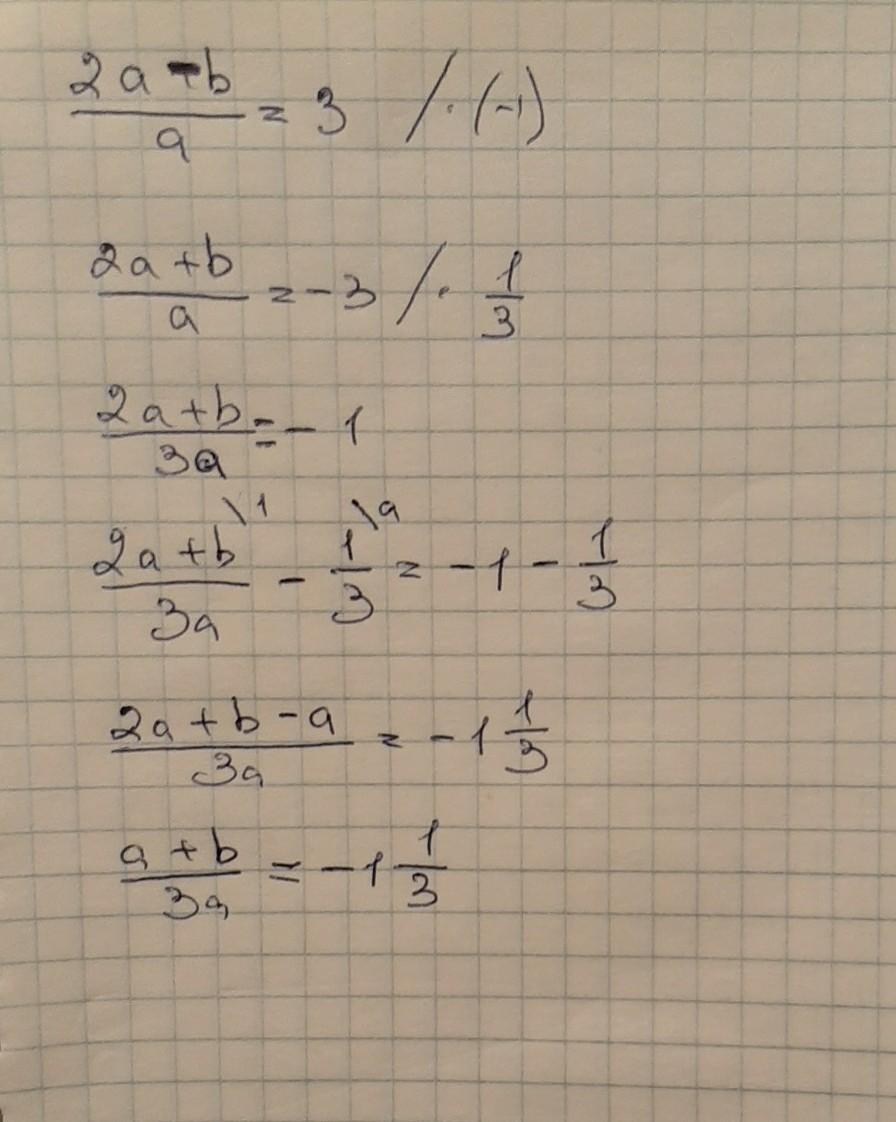 (2a - b)/a = 3 / · (-1)
(2a + b)/a = -3 / · 1/3
(2a + b)/3a = -1
(2a + b)/3a \1 - 1/3 \a = -1 - 1/3
(2a + b - a)/3a = -1 1/3
(a + b)/3a = -1 1/3